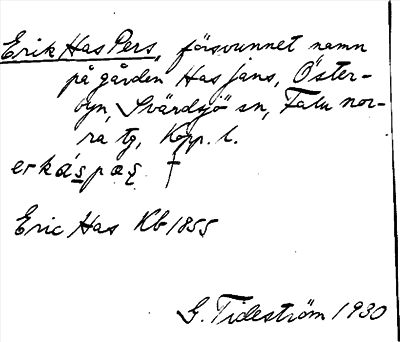 Erik Has Pers, försvunnet namn
på gården Has Jans, Öster-
byn, Svärdsjö sn, Falu nor-
ra tg, Kopp. l.
erkás pæs †
Eric Has Kb 1855
G. Tideström 1930